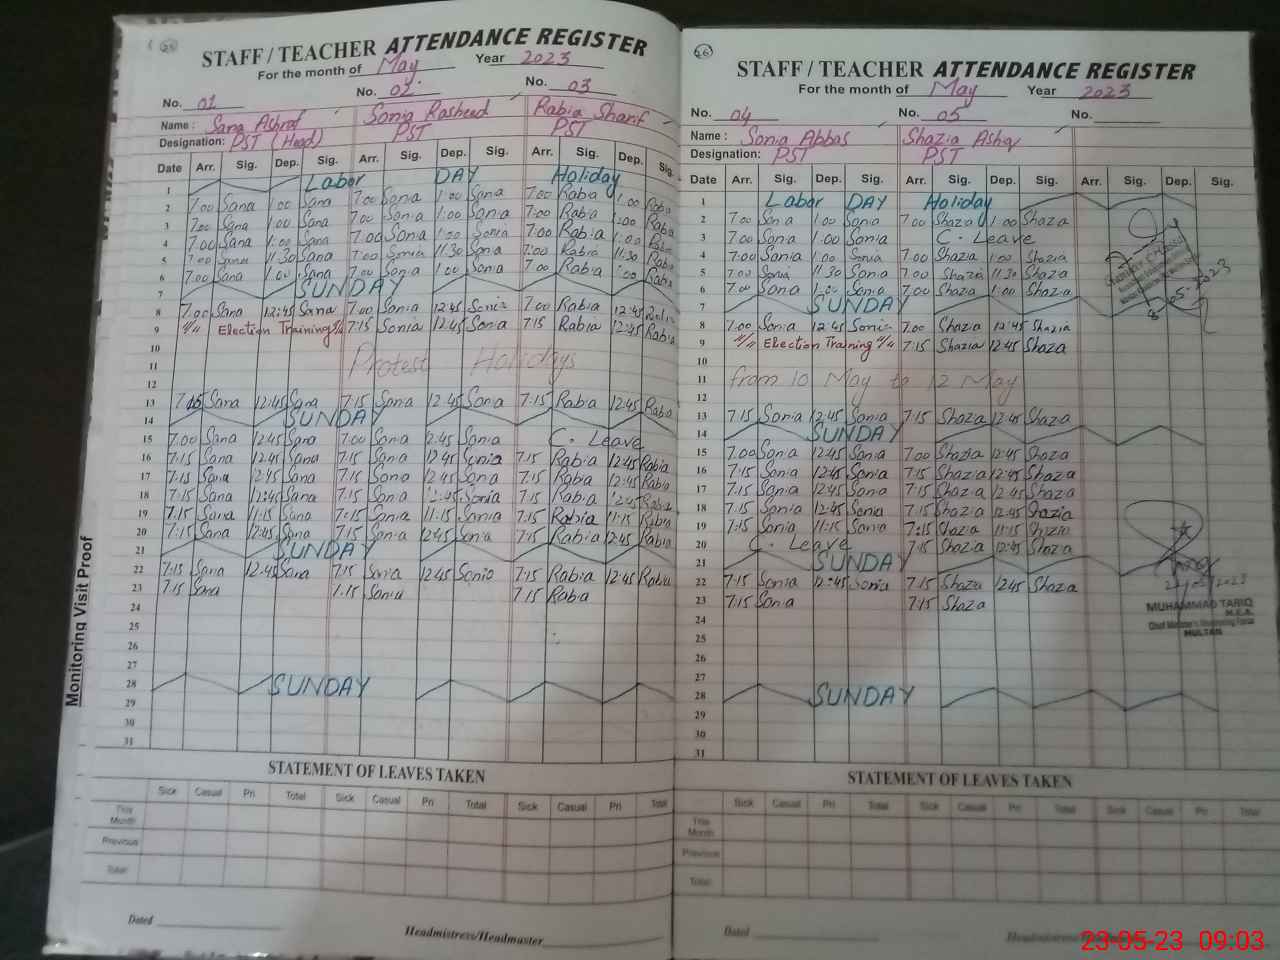 STAFF / TEACHER ATTENDANCE REGISTER
For the month of May Year 2023
No. 01 No. 02 No. 03
Name : Sana Ashraf Sonia Rasheed Rabia Sharif
Designation: PST (Head) PST PST
Date Arr. Sig. Dep. Sig. Arr. Sig. Dep. Sig. Arr. Sig. Dep. Sig.
1 Labor DAY Holiday
2 7.00 Sana 1.00 Sana 7.00 Sonia 1:00 Sonia 7.00 Rabia 1.00 Rabia
3 7.00 Sana 1.00 Sana 7.00 Sonia 1:00 Sonia 7:00 Rabia 1:00 Rabia
4 7.00 Sana 1:00 Sana 7.00 Sonia 1:00 Sonia 7:00 Rabia 1:00 Rabia
5 7.00 Sana 11:30 Sana 7.00 Sonia 11:30 Sonia 7:00 Rabia 11:30 Rabia
6 7.00 Sana 1.00 Sana 7.00 Sonia 1:00 Sonia 7.00 Rabia 1:00 Rabia
7 SUNDAY
8 7.00 Sana 12:45 Sana 7.00 Sonia 12:45 Sonia 7.00 Rabia 12:45 Rabia
9 Election Training 7:15 Sonia 12:45 Sonia 7:15 Rabia 12:45 Rabia
10
11 Protest Holidays
12
13 7.15 Sana 12:45 Sana 7.15 Sonia 12:45 Sonia 7:15 Rabia 12:45 Rabia
14 SUNDAY
15 7.00 Sana 12:45 Sana 7:00 Sonia 12:45 Sonia C. Leave
16 7:15 Sana 12:45 Sana 7:15 Sonia 12:45 Sonia 7:15 Rabia 12:45 Rabia
17 7:15 Sana 12:45 Sana 7:15 Sonia 12:45 Sonia 7:15 Rabia 12:45 Rabia
18 7:15 Sana 12:45 Sana 7:15 Sonia 12:45 Sonia 7:15 Rabia 12:45 Rabia
19 7.15 Sana 11:15 Sana 7:15 Sonia 11:15 Sonia 7:15 Rabia 11:15 Rabia
20 7:15 Sana 12:45 Sana 7:15 Sonia 12:45 Sonia 7:15 Rabia 12:45 Rabia
21 SUNDAY
22 7:15 Sana 12:45 Sana 7:15 Sonia 12:45 Sonia 7:15 Rabia 12:45 Rabia
23 7:15 Sana 7.15 Sonia 7:15 Rabia
24
25
26
27
28 SUNDAY
29
30
31
STATEMENT OF LEAVES TAKEN
Sick Casual Pri Total Sick Casual Pri Total Sick Casual Pri Total
This Month
Previous
Total
Dated
Headmistress/Headmaster
Monitoring Visit Proof
26
STAFF / TEACHER ATTENDANCE REGISTER
For the month of May Year 2023
No. 04 No. 05 No.
Name : Sonia Abbas Shazia Ashiq
Designation: PST PST
Date Arr. Sig. Dep. Sig. Arr. Sig. Dep. Sig. Arr. Sig. Dep. Sig.
1 Labor DAY Holiday
2 7.00 Sonia 1.00 Sonia 7.00 Shaza 1:00 Shaza
3 7.00 Sonia 1:00 Sonia C. Leave
4 7.00 Sonia 1.00 Sonia 7.00 Shazia 1:00 Shazia
5 7.00 Sonia 11:30 Sonia 7.00 Shazia 11:30 Shaza
6 7.00 Sonia 1:00 Sonia 7.00 Shaza 1:00 Shaza
7 SUNDAY
8 7.00 Sonia 12:45 Sonia 7.00 Shazia 12:45 Shazia
9 Election Training 7:15 Shazia 12:45 Shaza
10
11 from 10 May to 12 May
12
13 7:15 Sonia 12:45 Sonia 7:15 Shaza 12:45 Shaza
14 SUNDAY
15 7.00 Sonia 12:45 Sonia 7.00 Shazia 12:45 Shaza
16 7:15 Sonia 12:45 Sonia 7:15 Shazia 12:45 Shaza
17 7:15 Sonia 12:45 Sonia 7:15 Shazia 12:45 Shaza
18 7:15 Sonia 12:45 Sonia 7:15 Shaza 12:45 Shazia
19 7:15 Sonia 11:15 Sonia 7:15 Shaza 11:15 Shazia
20 C. Leave 7:15 Shaza 12:45 Shaza
21 SUNDAY
22 7:15 Sonia 12:45 Sonia 7:15 Shaza 12:45 Shaza
23 7:15 Sonia 7:15 Shaza
24
25
26
27
28 SUNDAY
29
30
31
MUHAMMAD TARIQ
M.E.A.
Chief Minister's Monitoring Force
MULTAN
STATEMENT OF LEAVES TAKEN
Sick Casual Pri Total Sick Casual Pri Total Sick Casual Pri Total
This Month
Previous
Total
Dated
23-05-23 09:03